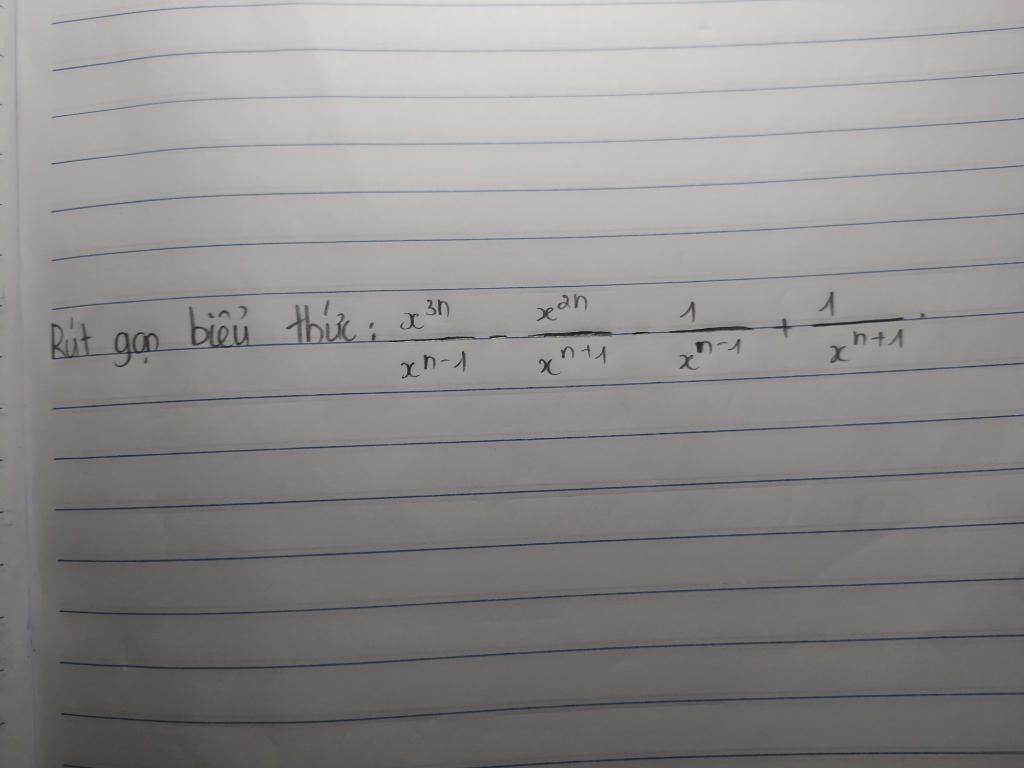 Rút gọn biểu thức: $\frac{x^{3n}}{x^{n-1}} - \frac{x^{2n}}{x^{n+1}} - \frac{1}{x^{n-1}} + \frac{1}{x^{n+1}}$.